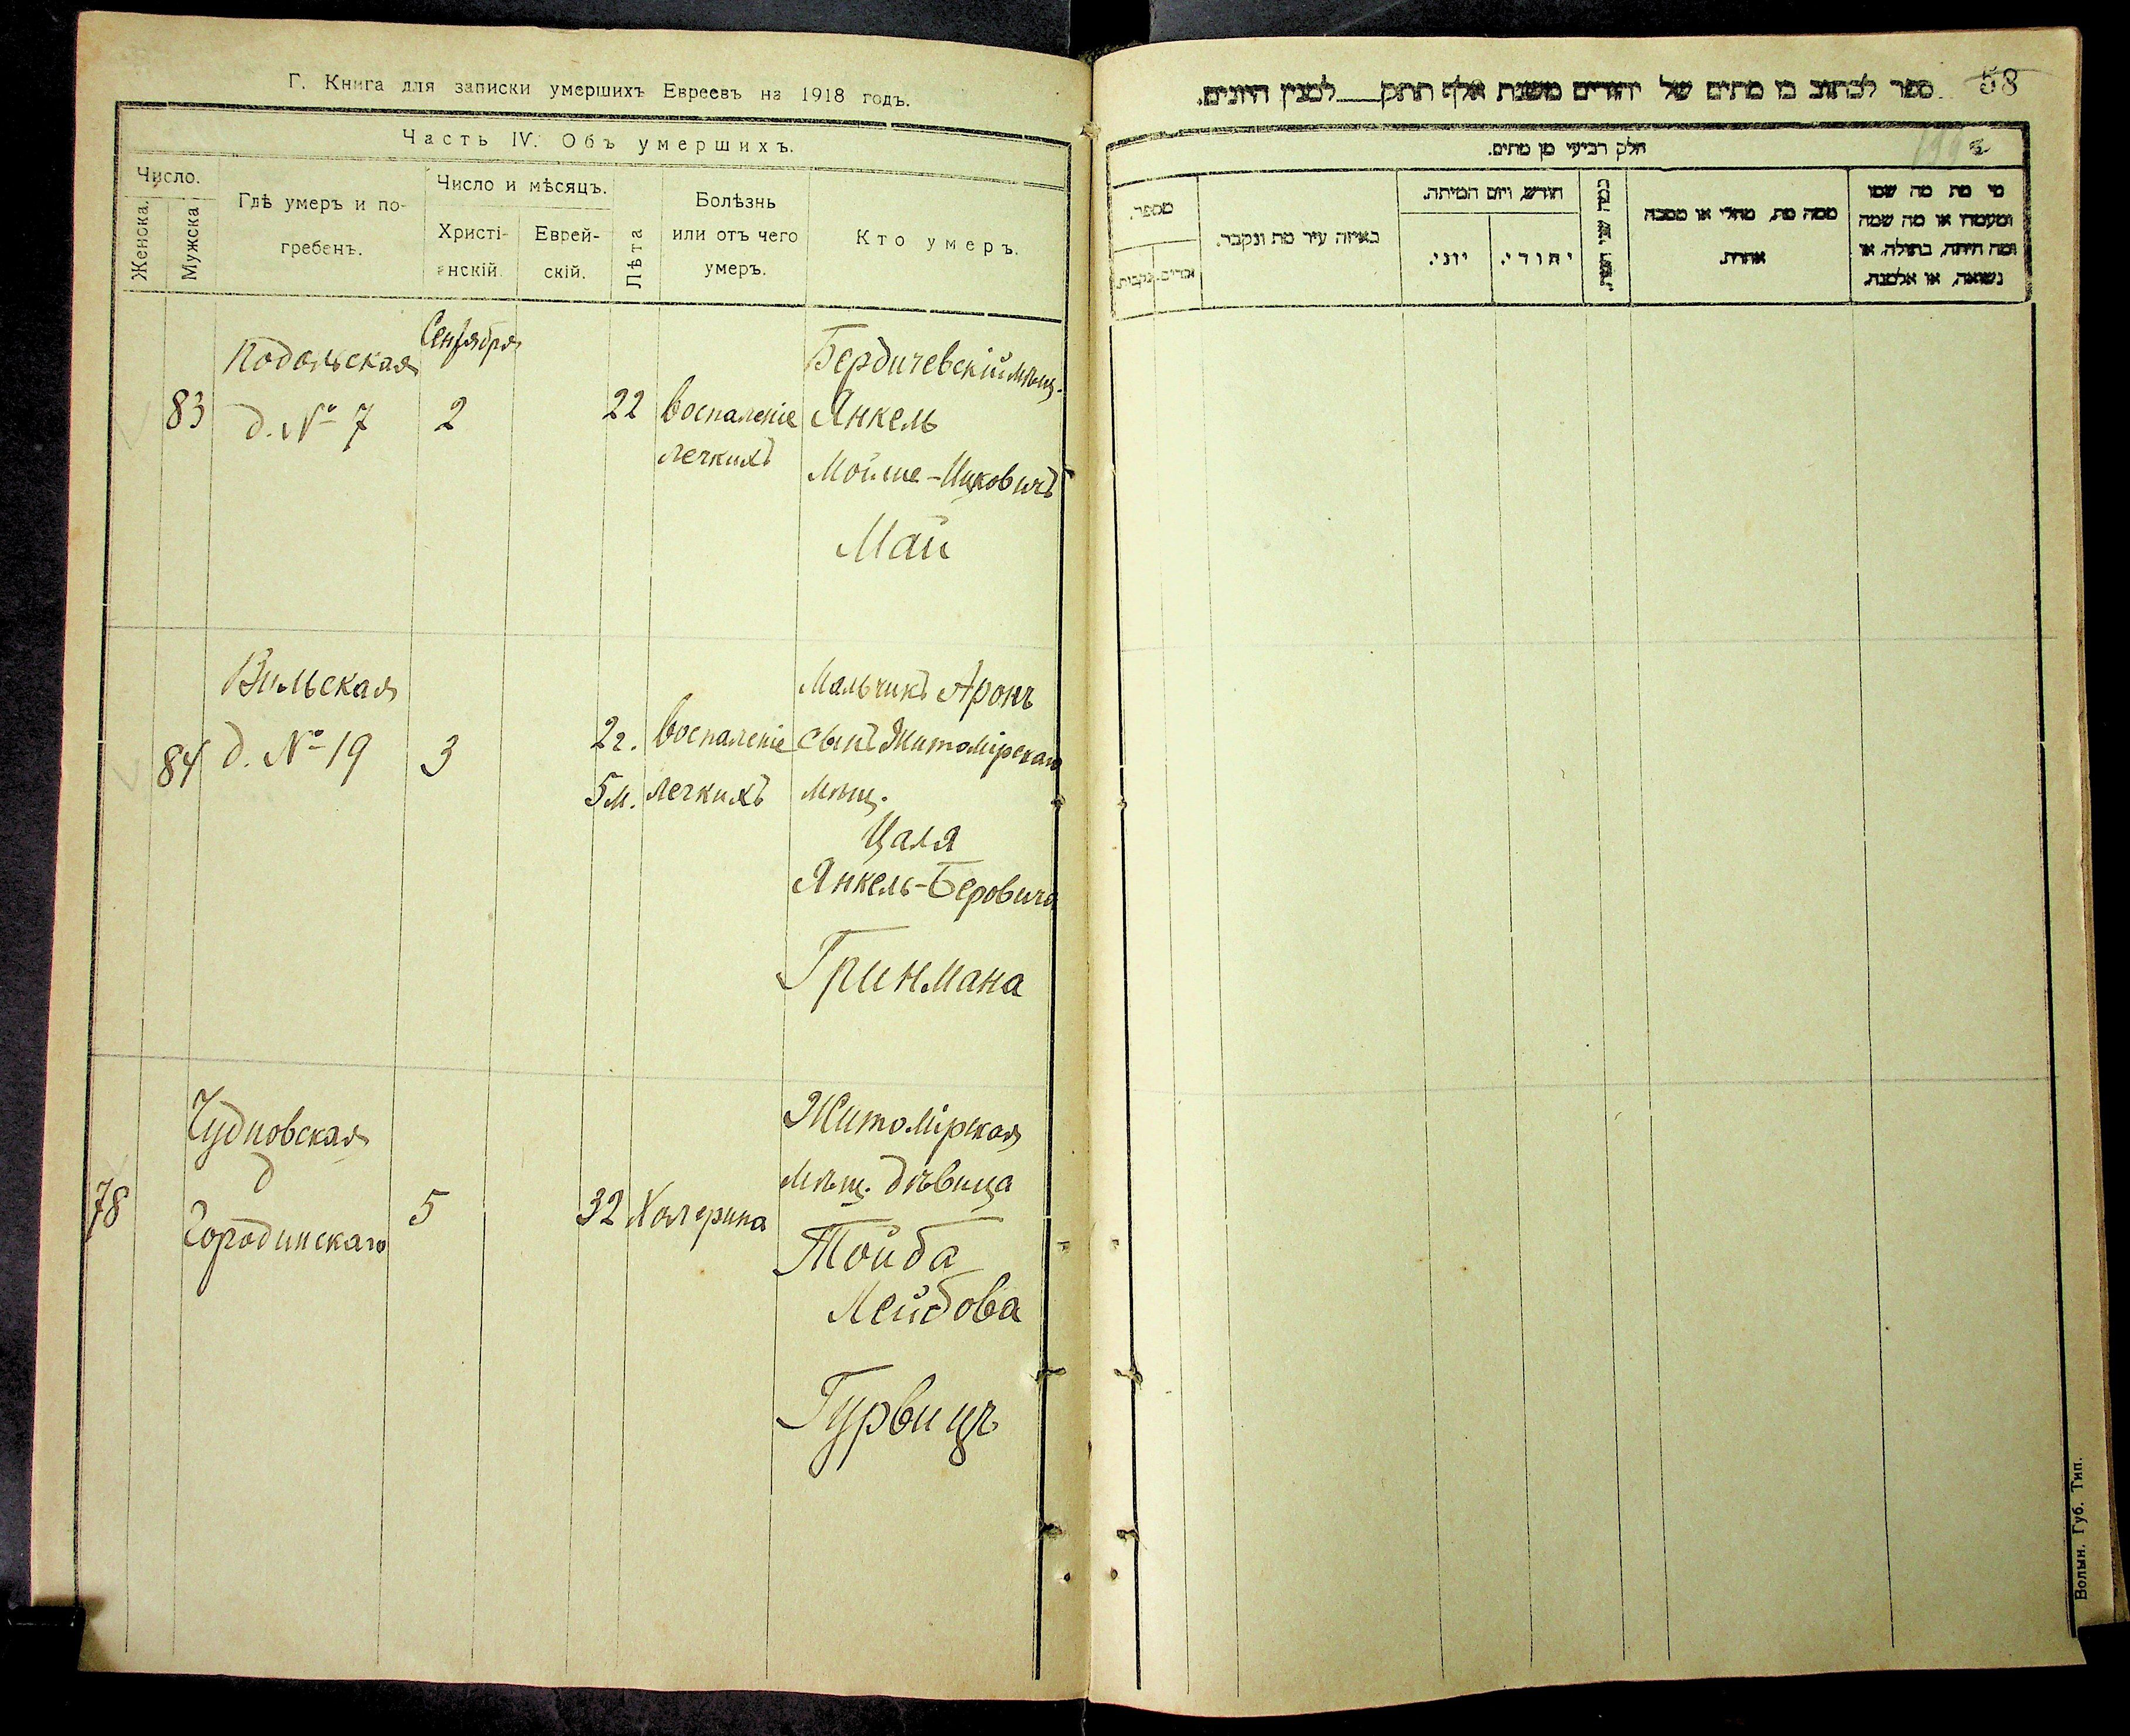 Г. Книга для записки умершихъ Евреевъ на 1918 годъ.
Часть IV. Объ умершихъ.
Число.
Женска.
Мужска
Гдѣ умеръ и по-
гребенъ.
Число и мѣсяцъ.
Христі-
анскій.
Еврей-
скій.
Лѣта
Болѣзнь
или отъ чего
умеръ.
Кто умеръ.
83
Подольская
д. № 7
Сентября
2
22
воспаленіе
легкихъ
Бердичевскій мѣщ.
Янкель
Мойше-Ицковичъ
Май
84
Вильская
д. № 19
3
2 г.
5 м.
воспаленіе
легкихъ
Мальчикъ Аронъ
сынъ Житомірскаго
мѣщ.
Цаля
Янкель-Беровича
Гринмана
78
Чудновская
д
Городинскаго
5
32
Холерина
Житомірская
мѣщ. дѣвица
Тойба
Лейбова
Гурвицъ
ספר לכתוב בו מתים של יהודים משנת אלף תתק___למנין היונים.
58
חלק רביעי מן מתים.
מספר.
באיזה עיר מת ונקבר.
חודש, ויום המיתה.
יוני.
יהודי.
ממה מת, מחלי או מסבה
אחרת.
מי מת מה שמו
ומעמדו או מה שמה
ומה היתה, בתולה, או
נשואה, או אלמנה.
Волын. Губ. Тип.